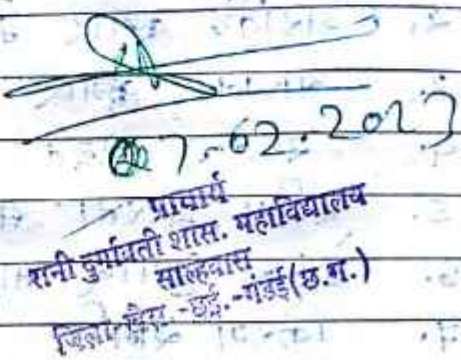 07-02-2023
प्राचार्य
रानी दुर्गावती शास. महाविद्यालय
साल्हेवारा
जिला- -छुई.-गंडई(छ.ग.)